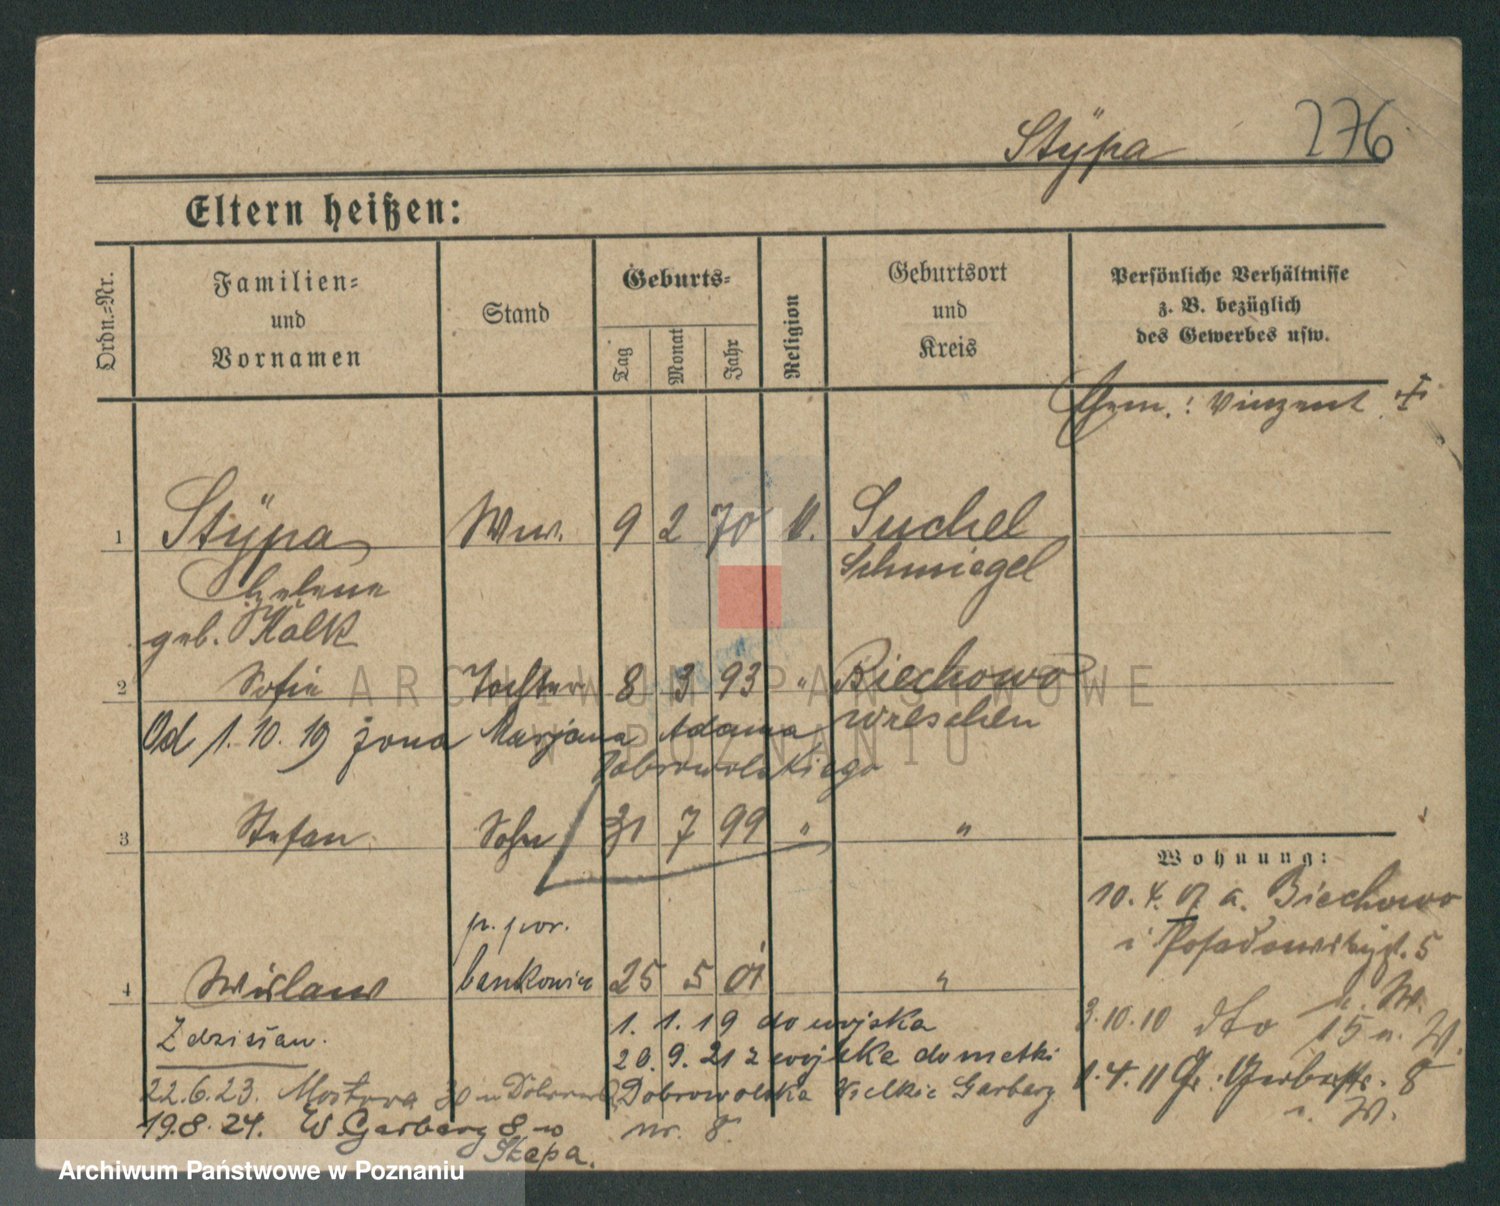 Stÿpa 276
Eltern heißen:
Ordn.-Nr.
Familien-
und
Vornamen
Stand
Geburts-
Tag Monat Jahr
Religion
Geburtsort
und
Kreis
Persönliche Verhältnisse
z. B. bezüglich
des Gewerbes usw.
Gem.: Vinzent
1 Stÿpa Ww. 9 2 70 k. Suchel
Helene Schmiegel
geb. Kalk
2 Sofie Tochter 8 3 93 " Biechowo
Wreschen
Od 1.10.19 żona Marjana Adama
Dobrowolskiego
3 Stefan Sohn 31 7 99 " "
Wohnung:
10.4.07 a. Biechowo
i. 5
4 Wislaw bankowiec 25 5 01 "
Zdzisław.
1.1.19 do wojska
20.9.21 z wojska do matki
Dobrowolska Wielkie Garbary
nr. 8.
3.10.10 dto 15 u. W.
1.4.11 Gr. Gerberstr. 8
u. W.
22.6.23. Mostowa 30 u
19.8.24. W. Garbary 8 w
Stępa.
ARCHIWUM PAŃSTWOWE
W POZNANIU
Archiwum Państwowe w Poznaniu